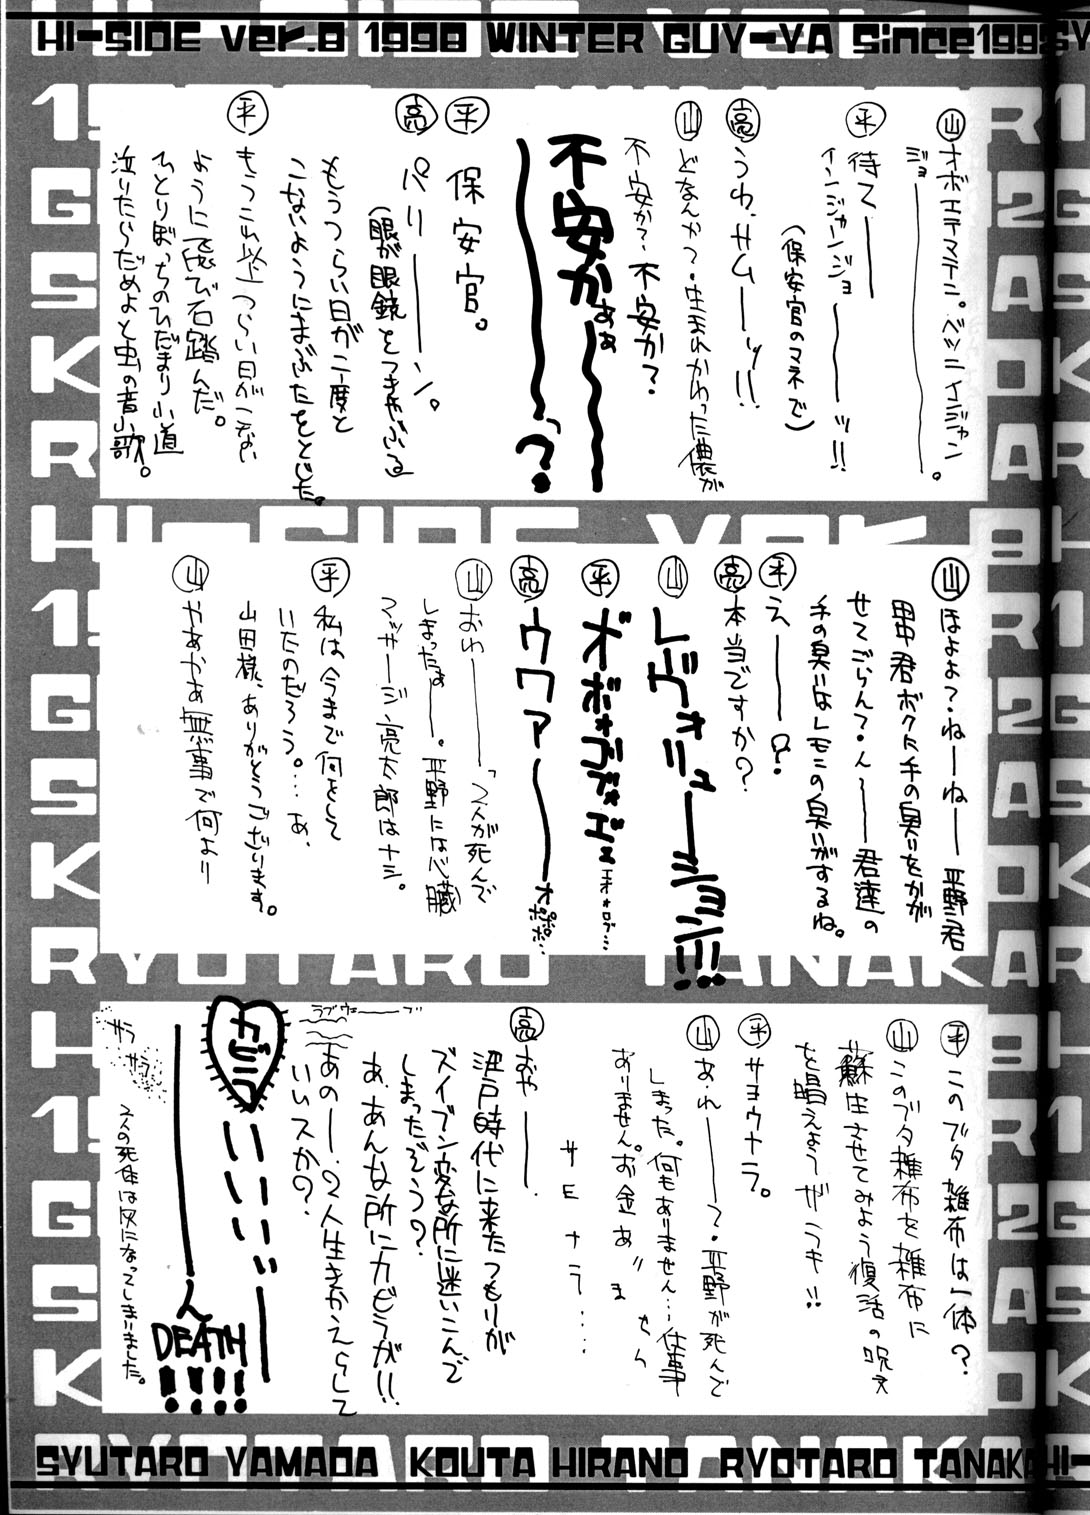 HI-SIDE ver.8 1998 WINTER GUY-YA Since199
山 オボエテマテン。ベツニインジャン
ジョ――――。
平 待て――
インジャンジョ――――ッ!!
(保安官のマネで)
亮 うわ、サム――ッ!!
山 どなんかつ・生まれかわった儂が
不安か?・不安か?
不安かぁぁ〜〜〜
〜〜〜っ?
平 保安官。
亮 パリ――ン。
(眼が眼鏡をつきやぶる
もうつらい日が二度と
こないようにまぶたをとじた。
平 もうこれ以上つらい日がこない
ように飛び石踏んだ。
ひとりぼっちのひだまり小道
泣いたらだめよと虫の音小歌。
山 ほよよ?ねーねー 平野君
田中君ボクに手の臭いをかが
せてごらん?ん〜――君達の
手の臭いはレモンの臭いがするね。
平 え――?
亮 本当ですか?
山 レヴォリューション!!!
平 オボォゴブォゲェ
亮 ウワァ――――オポポポ…
山 おわ――――「2人が死んで
しまったぁ――。平野には心臓
マッサージ、亮太郎はナシ。
平 私は今まで何をして
いたのだろう。…あ、
山田様、ありがとうございます。
山 やあやあ無事で何より
平 このブタ雑布は一体?
山 このブタ雑布を雑布に
蘇生させてみよう復活の呪文
を唱えよう ザラキ!!
平 サヨウナラ。
山 あ・れ――?・平野が死んで
しまった。何もありません…仕事
ありません。お金あ〃ませら
サヨナラ…
亮 おや――
江戸時代に来たつもりが
ズイブン変な所に迷いこんで
しまったぞう?
あ、あんな所にカビラが!!
あの――、2人生きかえらして
いいスか?
ラブウェーーブ
カビラ いいいい――
――――ん
DEATH
!!!!
サラサラ
2人の死体は灰になってしまいました。
SYUTARO YAMADA KOUTA HIRANO RYOTARO TANAKA HI-